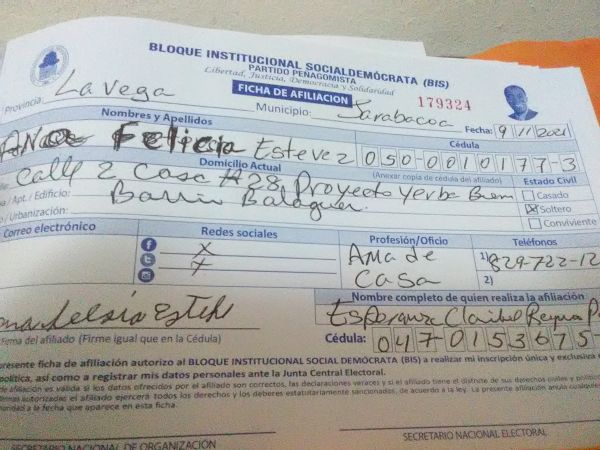 BLOQUE INSTITUCIONAL SOCIALDEMÓCRATA (BIS)
PARTIDO PEÑAGOMISTA
Libertad, Justicia, Democracia y Solidaridad
FICHA DE AFILIACION
179324
Provincia: La Vega
Municipio: Jarabacoa
Fecha: 9/11/2021
Nombres y Apellidos
Cédula
Ana Felicia Estevez
050-0010177-3
Domicilio Actual
(Anexar copia de cédula del afiliado)
Estado Civil
Calle 2 Casa #28 Proyecto Yerba Buena
Casado
/ Apt. / Edificio:
Barrio Balaguer
Soltero
/ Urbanización:
Conviviente
Correo electrónico
Redes sociales
Profesión/Oficio
Teléfonos
X
X
Ama de
Casa
1) 829-722-12
2)
Nombre completo de quien realiza la afiliación
Esperanza Claribel Reyna
Firma del afiliado (Firme igual que en la Cédula)
Cédula: 047-0153675
presente ficha de afiliación autorizo al BLOQUE INSTITUCIONAL SOCIAL DEMÓCRATA (BIS) a realizar mi inscripción única y exclusiva
política, así como a registrar mis datos personales ante la Junta Central Electoral.
de afiliación es valida si los datos ofrecidos por el afiliado son correctos, las declaraciones veraces y si el afiliado tiene el disfrute de sus derechos civiles y
autorizadas el afiliado ejercerá todos los derechos y los deberes estatutariamente sancionados, de acuerdo a la ley. La presente afiliación anula cualquier
a la fecha que aparece en esta ficha.
SECRETARIO NACIONAL DE ORGANIZACIÓN
SECRETARIO NACIONAL ELECTORAL